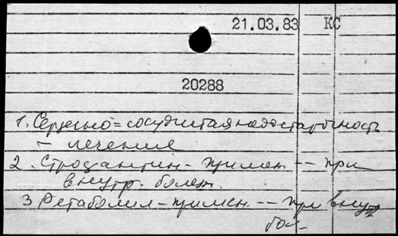 21.03.83 КС
20288
1. Сердечно=сосудистая недостаточность
- лечение
2. Строфантин - примен. -- при
внутр. болез.
3. Ретаболил - примен. -- при внутр
бол-